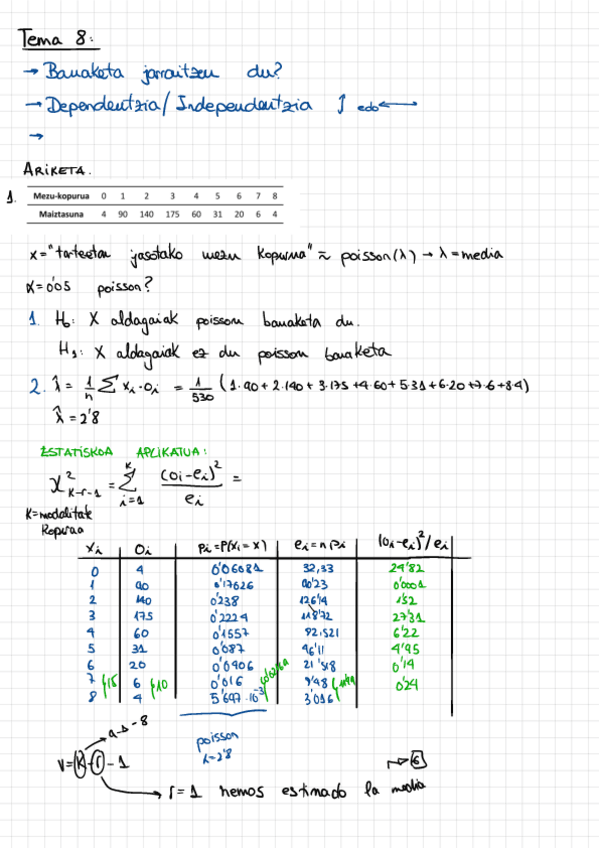 Tema 8:
→ Banaketa jarraitzen du?
→ Dependentzia/Independentzia ↕ edo ↔
→
ARIKETA.
1.
Mezu-kopurua 0 1 2 3 4 5 6 7 8
Maiztasuna 4 90 140 175 60 31 20 6 4
x="tartetan jasotako mezu kopurua" ≈ poisson(λ) → λ=media
α=0'05 poisson?
1. H₀: X aldagaiak poisson banaketa du.
H₁: X aldagaiak ez du poisson banaketa
2. λ̂ = 1/n Σ xi·Oi = 1/530 (1·90+2·140+3·175+4·60+5·31+6·20+7·6+8·4)
λ̂ = 2'8
ESTATISKOA APLIKATUA:
X²k-r-1 = Σ i=1 k (oi-ei)²/ei =
K=modalitate
Kopurua
xi Oi pi=P(xi=x) ei=n pi (oi-ei)²/ei
0 4 0'06081 32,33 24'82
1 90 0'17026 90'23 0'0001
2 140 0'238 126'14 1'52
3 175 0'2224 118'72 27'31
4 60 0'1557 92,521 6'22
5 31 0'087 46'11 4'95
6 20 0'0406 21'518 0'14
7 6 0'016 9'48 0'24
8 4 5'697·10⁻³ 3'016
poisson
λ=2'8
V=K-r-1
→ 6
r=1 hemos estimado la media